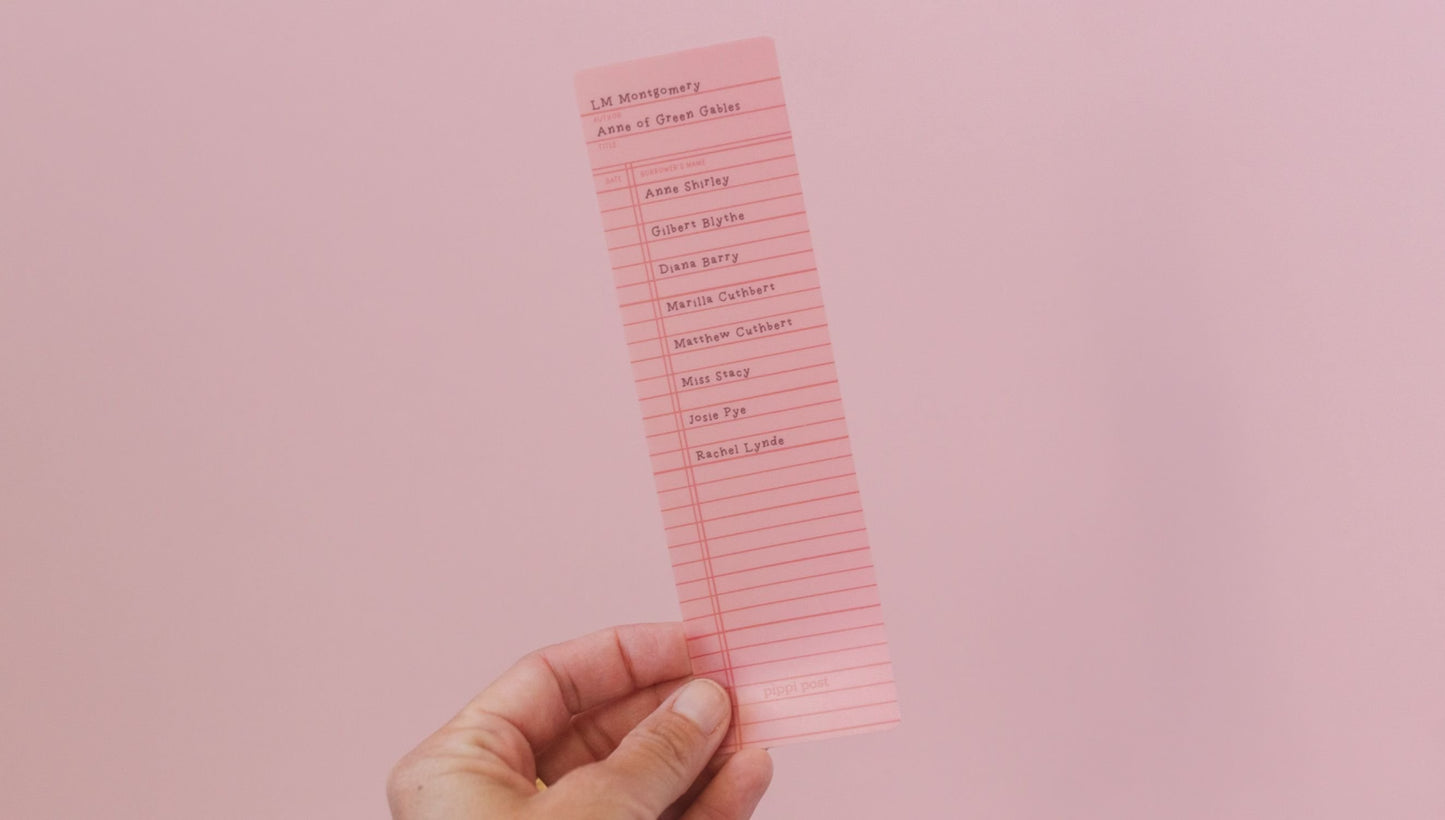 LM Montgomery
AUTHOR
Anne of Green Gables
TITLE
DATE BORROWER'S NAME
Anne Shirley
Gilbert Blythe
Diana Barry
Marilla Cuthbert
Matthew Cuthbert
Miss Stacy
Josie Pye
Rachel Lynde
pippi post